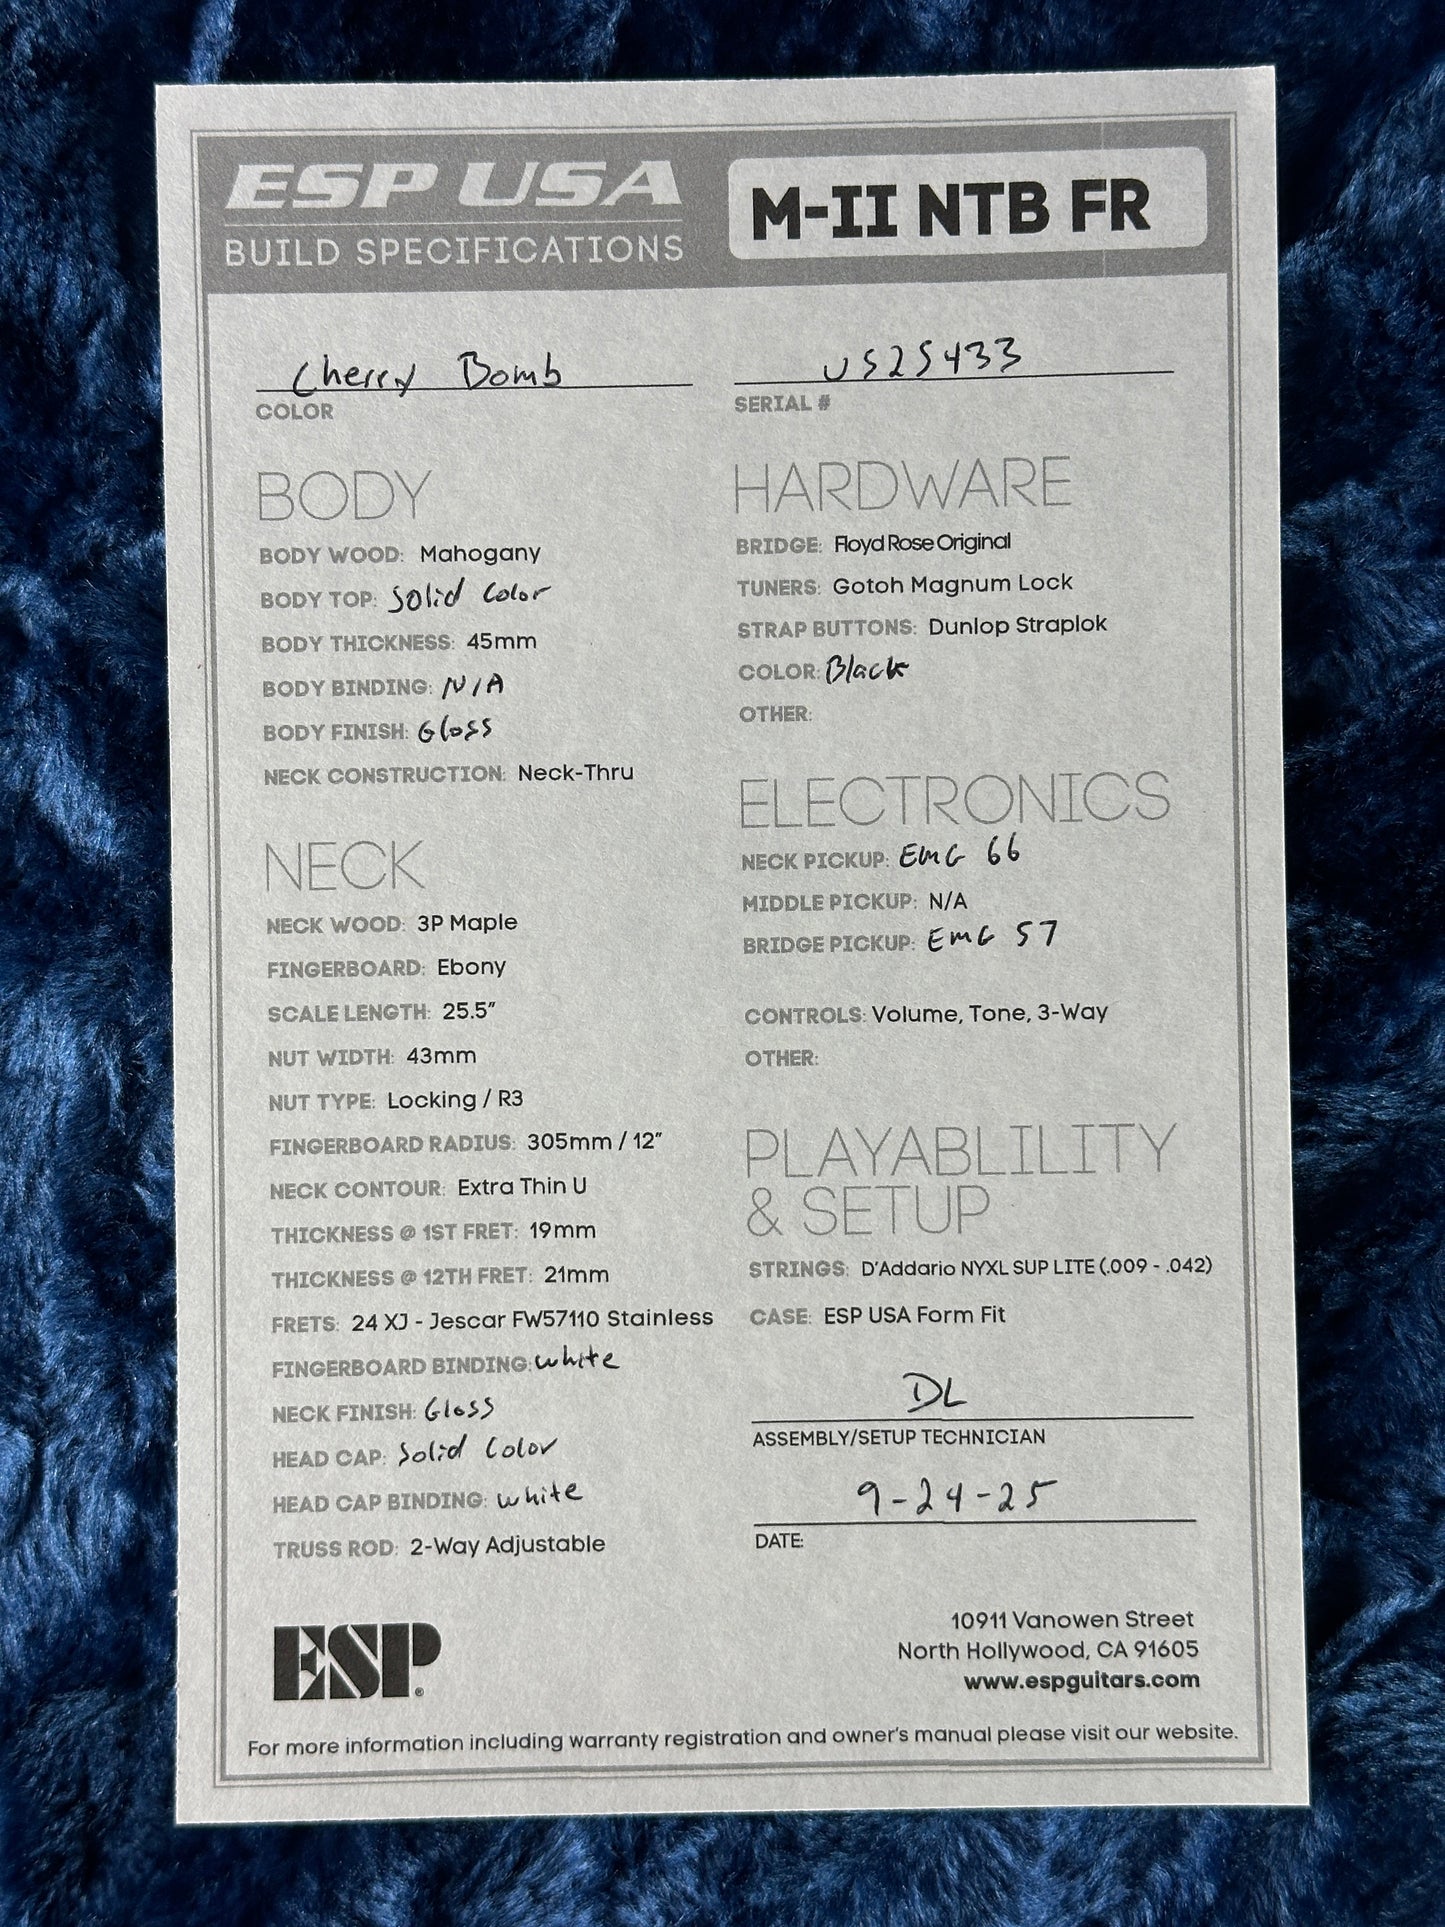 ESP USA
BUILD SPECIFICATIONS
M-II NTB FR
Cherry Bomb
COLOR
US25433
SERIAL #
BODY
BODY WOOD: Mahogany
BODY TOP: Solid Color
BODY THICKNESS: 45mm
BODY BINDING: N/A
BODY FINISH: Gloss
NECK CONSTRUCTION: Neck-Thru
NECK
NECK WOOD: 3P Maple
FINGERBOARD: Ebony
SCALE LENGTH: 25.5"
NUT WIDTH: 43mm
NUT TYPE: Locking / R3
FINGERBOARD RADIUS: 305mm / 12"
NECK CONTOUR: Extra Thin U
THICKNESS @ 1ST FRET: 19mm
THICKNESS @ 12TH FRET: 21mm
FRETS: 24 XJ - Jescar FW57110 Stainless
FINGERBOARD BINDING: white
NECK FINISH: Gloss
HEAD CAP: Solid Color
HEAD CAP BINDING: white
TRUSS ROD: 2-Way Adjustable
HARDWARE
BRIDGE: Floyd Rose Original
TUNERS: Gotoh Magnum Lock
STRAP BUTTONS: Dunlop Straplok
COLOR: Black
OTHER:
ELECTRONICS
NECK PICKUP: EMG 66
MIDDLE PICKUP: N/A
BRIDGE PICKUP: EMG 57
CONTROLS: Volume, Tone, 3-Way
OTHER:
PLAYABLILITY
& SETUP
STRINGS: D'Addario NYXL SUP LITE (.009 - .042)
CASE: ESP USA Form Fit
DL
ASSEMBLY/SETUP TECHNICIAN
9-24-25
DATE:
ESP®
10911 Vanowen Street
North Hollywood, CA 91605
www.espguitars.com
For more information including warranty registration and owner's manual please visit our website.